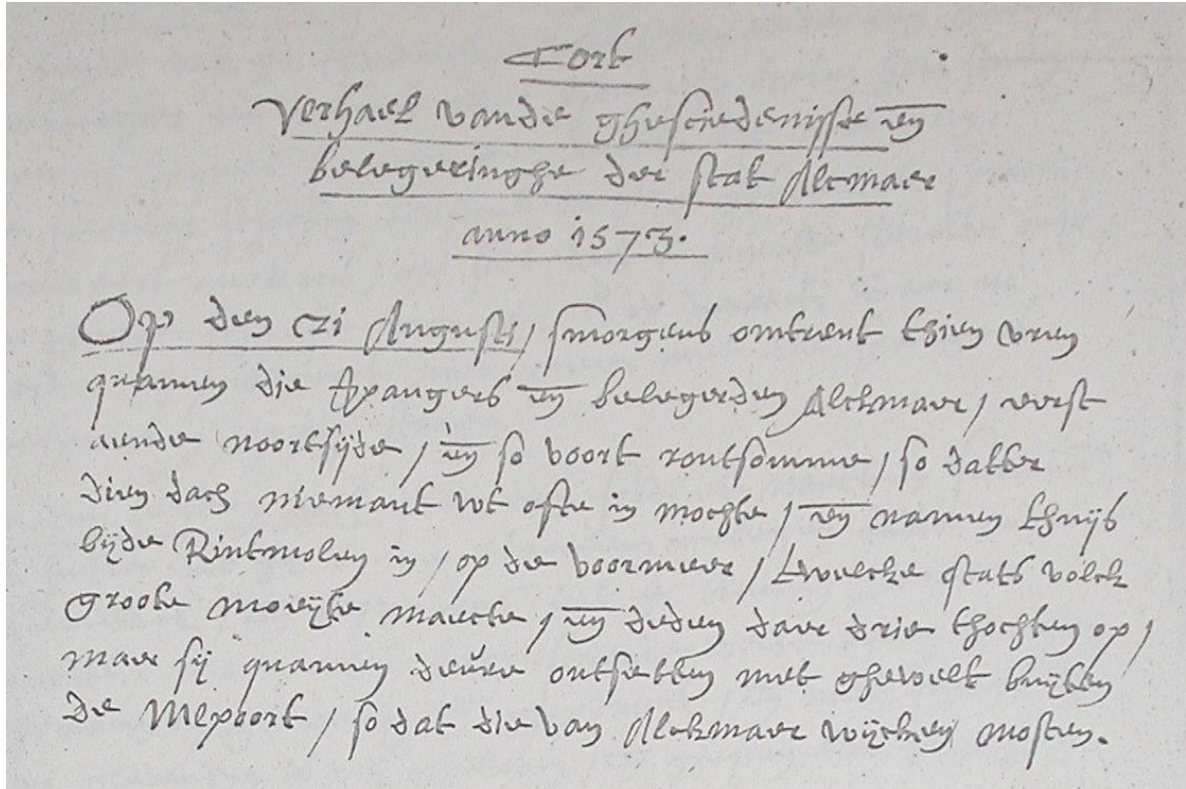 Cort
Verhael vande ghesciedenisse en
belegeringhe der stat Alcmaer
anno 1573.
Op den 21 Augusti / smorgens omtrent thien uren
quamen die Spangers en belegerden Alckmaer / eerst
aende noortsijde / en so voort rontsomme / so datter
dien dach niemant wt ofte in mochte / en namen thuijs
bijde Rintmolen in / op die voormeer / twelcke stats volck
groote moeijte maecte / en deden daer drie thochten op /
maer sij quamen deure ontsetten met ghewelt buijten
de poort / so dat die van Alckmaer wijcken mosten.